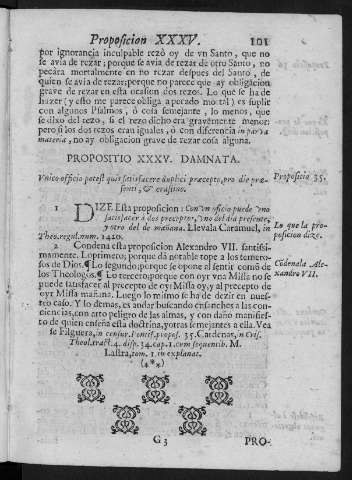 Proposicion XXXV. 101
por ignorancia inculpable rezò oy de vn Santo, que no
se avia de rezar; porque se avia de rezar de otro Santo, no
pecàra mortalmente en no rezar despues del Santo, de
quien se avia de rezar; porque no parece que ay obligacion
grave de rezar en esta ocasion dos rezos. Lo que se ha de
hazer (y esto me parece obliga a pecado mortal) es suplir
con algunos Psalmos, ò cosa semejante, lo menos, que
se dixo del rezo, si el rezo dicho era gravemente menor:
pero si los dos rezos eran iguales, ò con diferencia in parva
materia, no ay obligacion grave de rezar cosa alguna.
PROPOSITIO XXXV. DAMNATA.
Vnico officio potest quis satisfacere duplici præcepto, pro die præ-
senti, & crastino.
Propositio 35.
1 DIZE Esta proposicion: Con vn oficio puede vno
satisfacer à dos preceptos, vno del dia presente,
y otro del de mañana. Llevala Caramuel, in
Theo.regul.num. 1420.
Lo que la pro-
posicion dize.
Condena esta proposicion Alexandro VII. santissi-
mamente. Lo primero; porque dà notable tope a los temero-
sos de Dios. ¶ Lo segundo; porque se opone al sentir comũ de
los Theologos. ¶ Lo tercero; porque con oyr vna Missa no se
puede satisfacer al precepto de oyr Missa oy, y al precepto de
oyr Missa mañana. Luego lo mismo se ha de dezir en nues-
tro caso. Y lo demas, es andar buscando ensanches a las con-
ciencias, con arto peligro de las almas, y con daño manifies-
to de quien enseña esta doctrina, y otras semejantes a ella. Vea
se Filguera, in censur. Pontif. propos. 35. Cardenas, in Cris.
Theol.tract. 4. disp. 34. cap. 1. cum sequentib. M.
Lastra, tom. 1. in explanat.
(***)
Cõdenala Ale-
xandro VII.
G3 PRO-